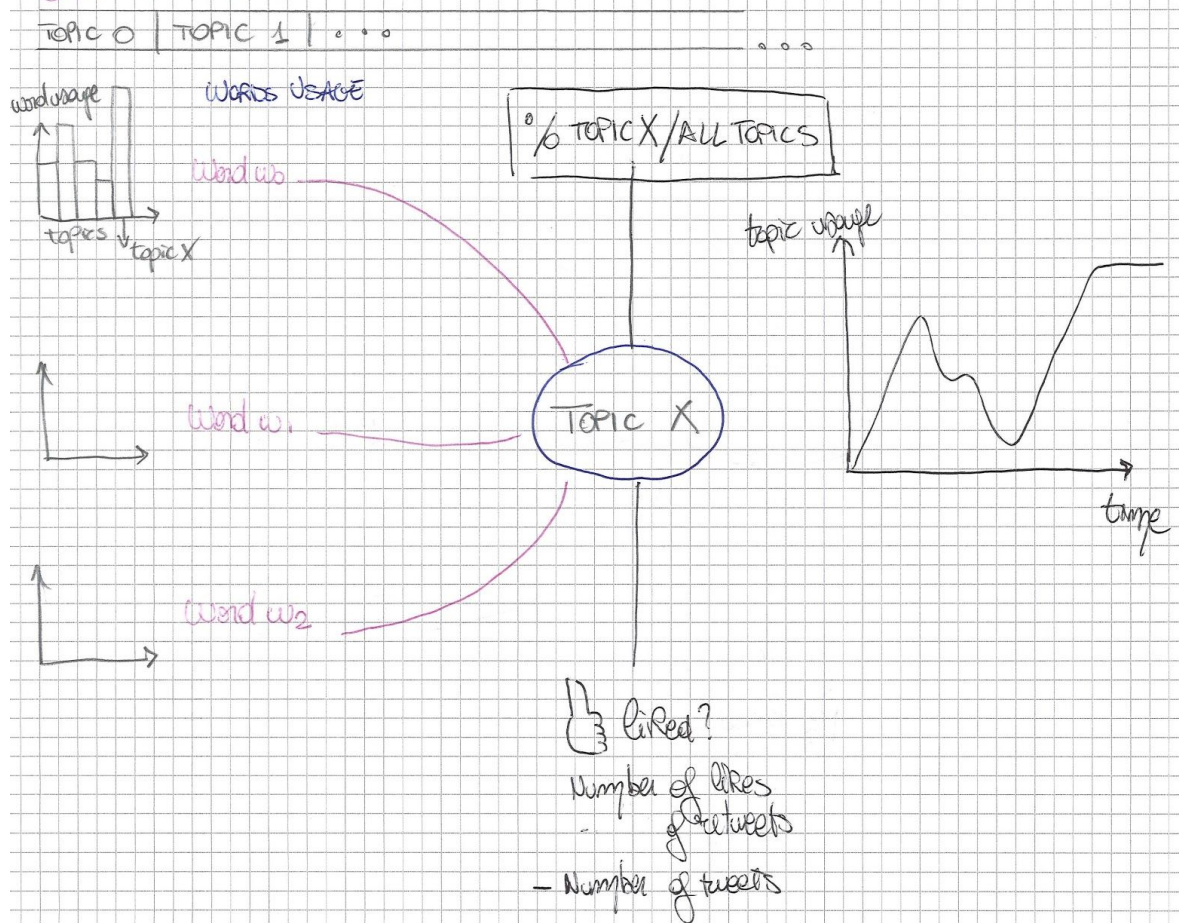 TOPIC 0 | TOPIC 1 | . . .
. . .
word usage
WORDS USAGE
topics
topic X
Word w0
Word w1
Word w2
% TOPIC X/ALL TOPICS
TOPIC X
topic usage
time
liked?
Number of likes
- of retweets
- Number of tweets